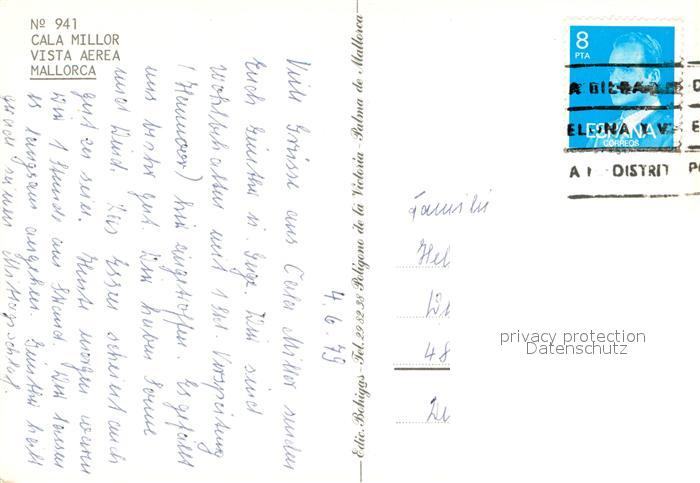 Nº 941
CALA MILLOR
VISTA AEREA
MALLORCA
4.6.79
Viele Grüsse aus Cala Millor senden
Euch Günther u. Inge. Wir sind
wohlbehalten mit 1 Std. Verspätung
(Hannover) hier eingetroffen. Es gefällt
uns sehr gut. Wir haben Sonne
und Wind. Das Essen scheint auch
gut zu sein. Heute morgen waren
wir 1 Stunde am Strand. Wir lassen
es langsam angehen. Günther hält
gerade seinen Mittagsschlaf.
Edic. Bohigas - Tel. 29 82 38 Polígono de la Victoria - Palma de Mallorca
8
PTA
ESPAÑA
CORREOS
A BILBA
ELEGNA Y V E
A DISTRIT P
Familie
Hel
48
De
privacy protection
Datenschutz